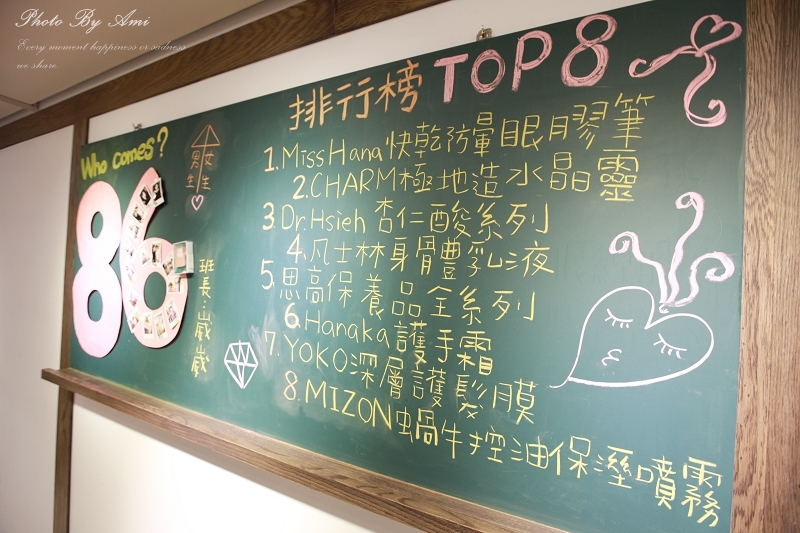 Photo By Ami
Every moment happiness or sadness
we share
Who comes?
86
男生
女生
班長:崴崴
排行榜 TOP 8
1. Miss Hana 快乾防暈眼膠筆
2. CHARM極地造水晶靈
3. Dr. Hsieh 杏仁酸系列
4. 凡士林身體乳液
5. 思高保養品全系列
6. Hanaka護手霜
7. YOKO深層護髮膜
8. MIZON蝸牛控油保溼噴霧